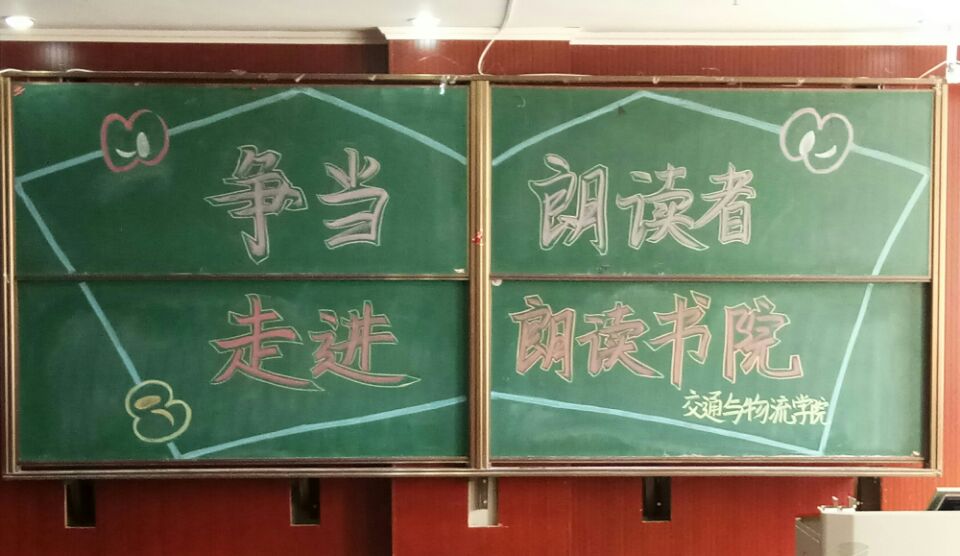 争当 朗读者
走进 朗读书院
交通与物流学院